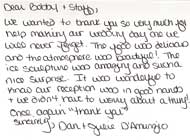 Dear Bobby + Staff,
We wanted to thank you so very much for
help making our wedding day one we
will never forget. The food was delicious
and the atmosphere was beautiful! The
ice sculpture was amazing and such a
nice surprise. It was wonderful to
know our reception was in good hands
+ we didn't have to worry about a thing!
Once again "thank you"
Sincerely,
Dan + Julie D'Amingo